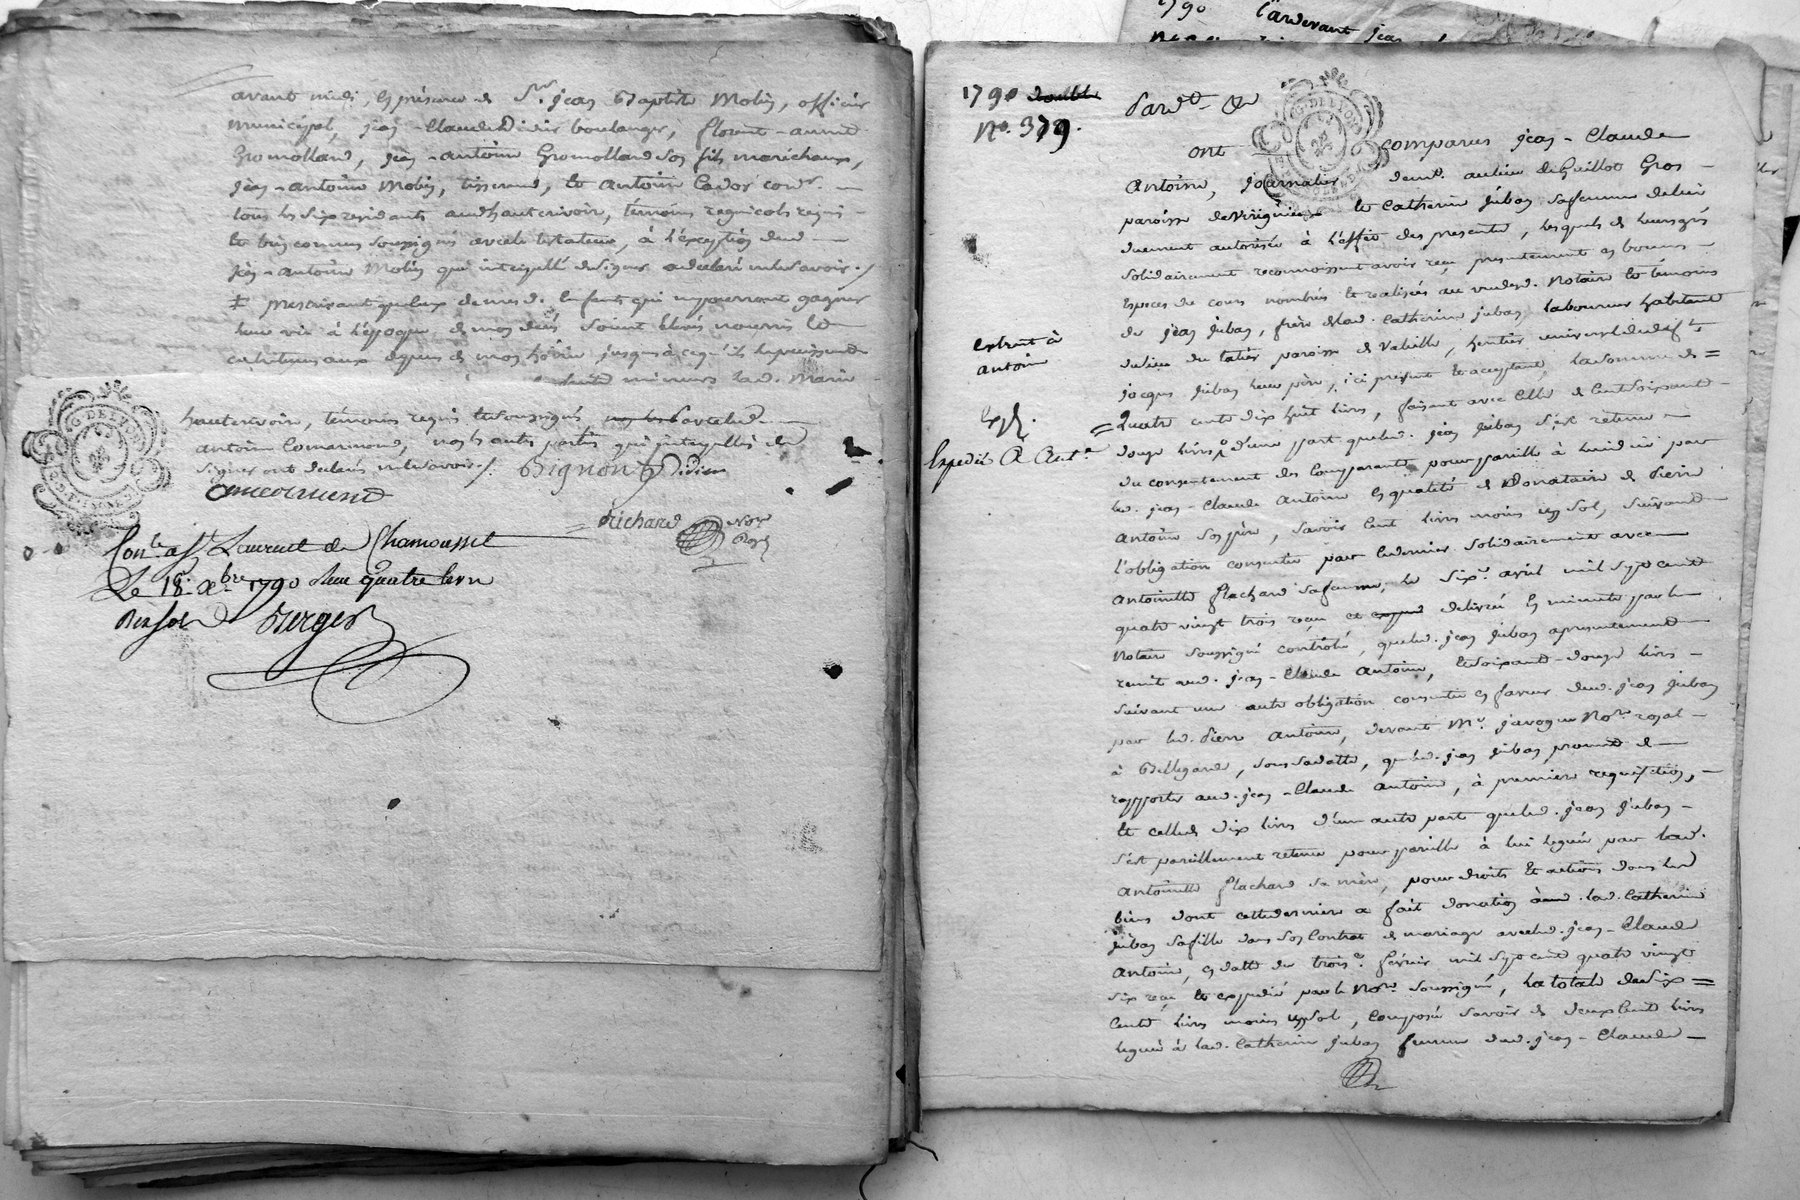 avant midi, en présence de Sr. jean Baptiste Molin, officier
municipal, jean-Claude Didier boulanger, florent-aimé
Gromolland, jean-antoine Gromolland son fils maréchaux,
jean-antoine Molin, tisserand, et antoine
tous les six résidants aud hauterivoir, témoins requis
et bien connus soussignés avec le testateur, à l'exception dud
jean-antoine Molin qui interpellé de signer a déclaré ne le savoir./
prescrivant que ceux de mesd. Enfants qui ne pourront gagner
leur vie à l'époque de mon décès soient élevés nourris et
entretenus aux dépens de mon hoirie jusques à ce qu'ils le puissent
mineurs lad. Marie
hauterivoir, témoins requis et soussignés avec led
antoine Comarmond, non les autres parties qui interpellés de
signer ont déclaré ne le savoir./. Bignon Didier
Comarmond
Richard Nore Royl
G. DE LYON
Conle. a St Laurent de Chamousset
Le 18. Xbre 1790 
Berger
1790 Pardevant jean
1790 double
No. 379.
Pardt. &a
G. DE LYON
ont comparus jean-Claude
Antoine, journalier demt. au lieu de Guillot Gros
paroisse de Virigneux et Catherine juban sa femme de lui
duement autorisée à l'effet des presentes, lesquels de leurs grés
solidairement reconnoissent avoir reçu presentement en bonnes
Especes de cours nombrés et realisés au vu desd. Notaire et témoins
de jean juban, frère de lad. Catherine juban laboureur habitant
au lieu du tatier paroisse de Valeille, heritier universel de deft.
jacques juban leur père, ici présent et acceptant, la somme de =
= Quatre cents dix huit livres, faisant avec celle de cent soixante
douze livres d'une part que led. jean juban s'est retenue
du consentement des Comparants pour pareille à lui düe par
led. jean-Claude Antoine en qualité de Donataire de Pierre
Antoine son père, savoir cent livres moins un sol, suivant
l'obligation consentie par ce dernier solidairement avec
antoinette flachard sa femme, le six. avril mil sept cent
quatre vingt trois reçue et delivrée en minute par le
Notaire soussigné controlée, que led. jean juban a presentement
remit aud. jean-Claude Antoine, et soixante-douze livres
suivant une autre obligation consentie en faveur dud. jean juban
par led. Pierre Antoine, devant Me. javogue Nore. royal
à Bellegarde, sous sa datte, que led. jean juban promet de
rapporter aud. jean-Claude Antoine, à première requisition,
Et celle de dix livres d'une autre part que led. jean juban
s'est pareillement retenue pour pareille à lui leguée par lad.
Antoinette flachard sa mère, pour droits et actions dans les
biens dont cette derniere a fait donation à lad. Catherine
juban sa fille dans son Contrat de mariage avec led. jean-Claude
Antoine, en datte du trois. février mil sept cent quatre vingt
six reçu et expedié par le Nore. soussigné, la totale de six =
cents livres moins un sol, Composée savoir de deux cent livres
leguée à lad. Catherine juban femme dud. jean-Claude
extrait à
antoine
Exp.
Expedié A Ante